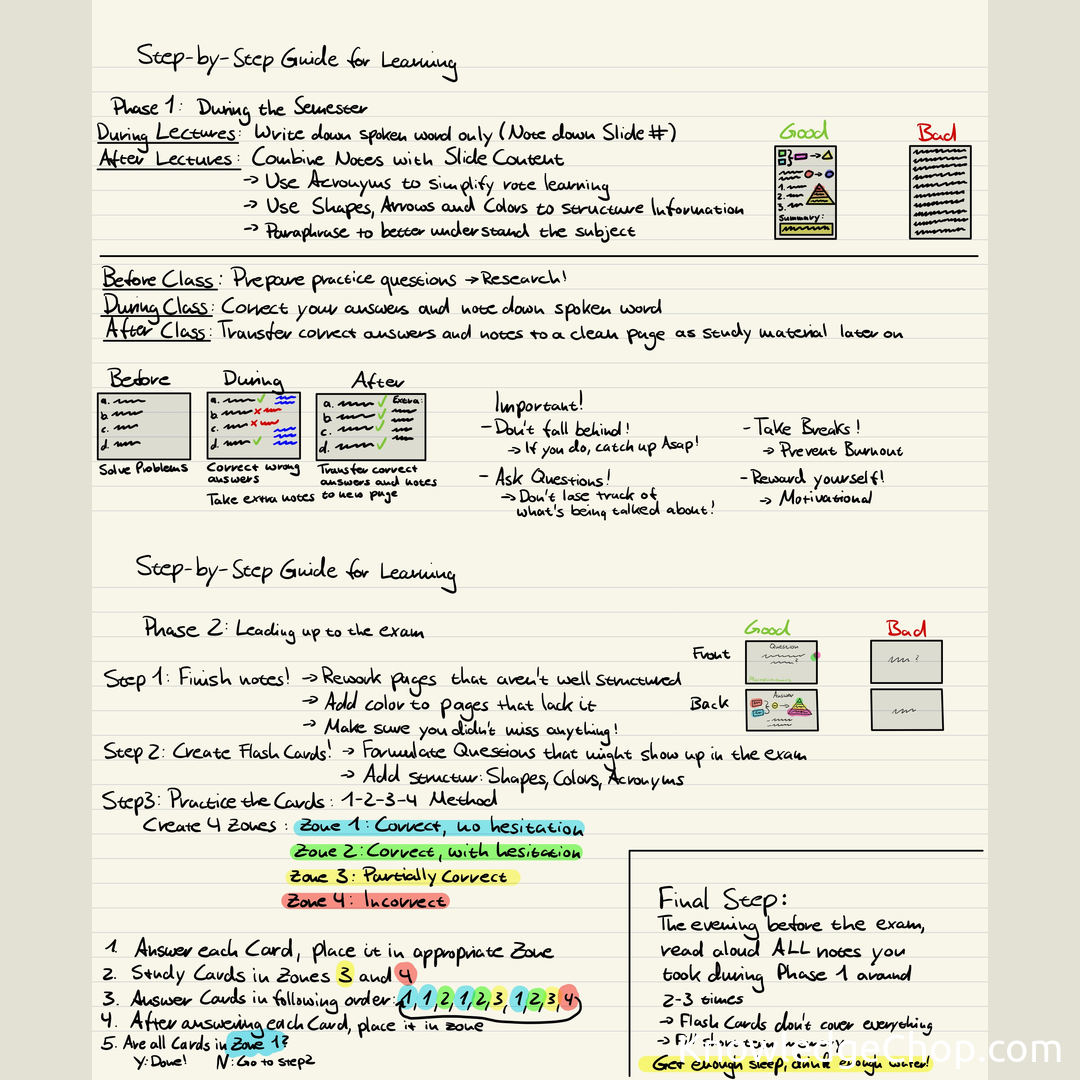 Step-by-Step Guide for Learning
Phase 1: During the Semester
During Lectures: Write down spoken word only (Note down Slide #)
After Lectures: Combine Notes with Slide Content
→ Use Acronyms to simplify rote learning
→ Use Shapes, Arrows and Colors to structure Information
→ Paraphrase to better understand the subject
Good
1.
2.
3.
Summary:
Bad
Before Class: Prepare practice questions → Research!
During Class: Correct your answers and note down spoken word
After Class: Transfer correct answers and notes to a clean page as study material later on
Before
a.
b.
c.
d.
Solve Problems
During
a.
b.
c.
d.
Correct wrong
answers
Take extra notes
After
a.
b.
c.
d.
Extra:
Transfer correct
answers and notes
to new page
Important!
- Don't fall behind!
→ If you do, catch up Asap!
- Ask Questions!
→ Don't lose track of
what's being talked about!
- Take Breaks!
→ Prevent Burnout
- Reward yourself!
→ Motivational
Step-by-Step Guide for Learning
Phase 2: Leading up to the exam
Good
Bad
Front
Question
?
?
Back
Answer
Step 1: Finish notes! → Rework pages that aren't well structured
→ Add color to pages that lack it
→ Make sure you didn't miss anything!
Step 2: Create Flash Cards! → Formulate Questions that might show up in the exam
→ Add structur: Shapes, Colors, Acronyms
Step3: Practice the Cards: 1-2-3-4 Method
Create 4 Zones: Zone 1: Correct, no hesitation
Zone 2: Correct, with hesitation
Zone 3: Partially Correct
Zone 4: Incorrect
1. Answer each Card, place it in appropriate Zone
2. Study Cards in Zones 3 and 4
3. Answer Cards in following order: 1,1,2,1,2,3,1,2,3,4
4. After answering each Card, place it in zone
5. Are all Cards in Zone 1?
Y: Done! N: Go to step2
Final Step:
The evening before the exam,
read aloud ALL notes you
took during Phase 1 around
2-3 times
→ Flash Cards don't cover everything
→ Fill short term memory
Get enough sleep, drink enough water!
KnowledgeChop.com